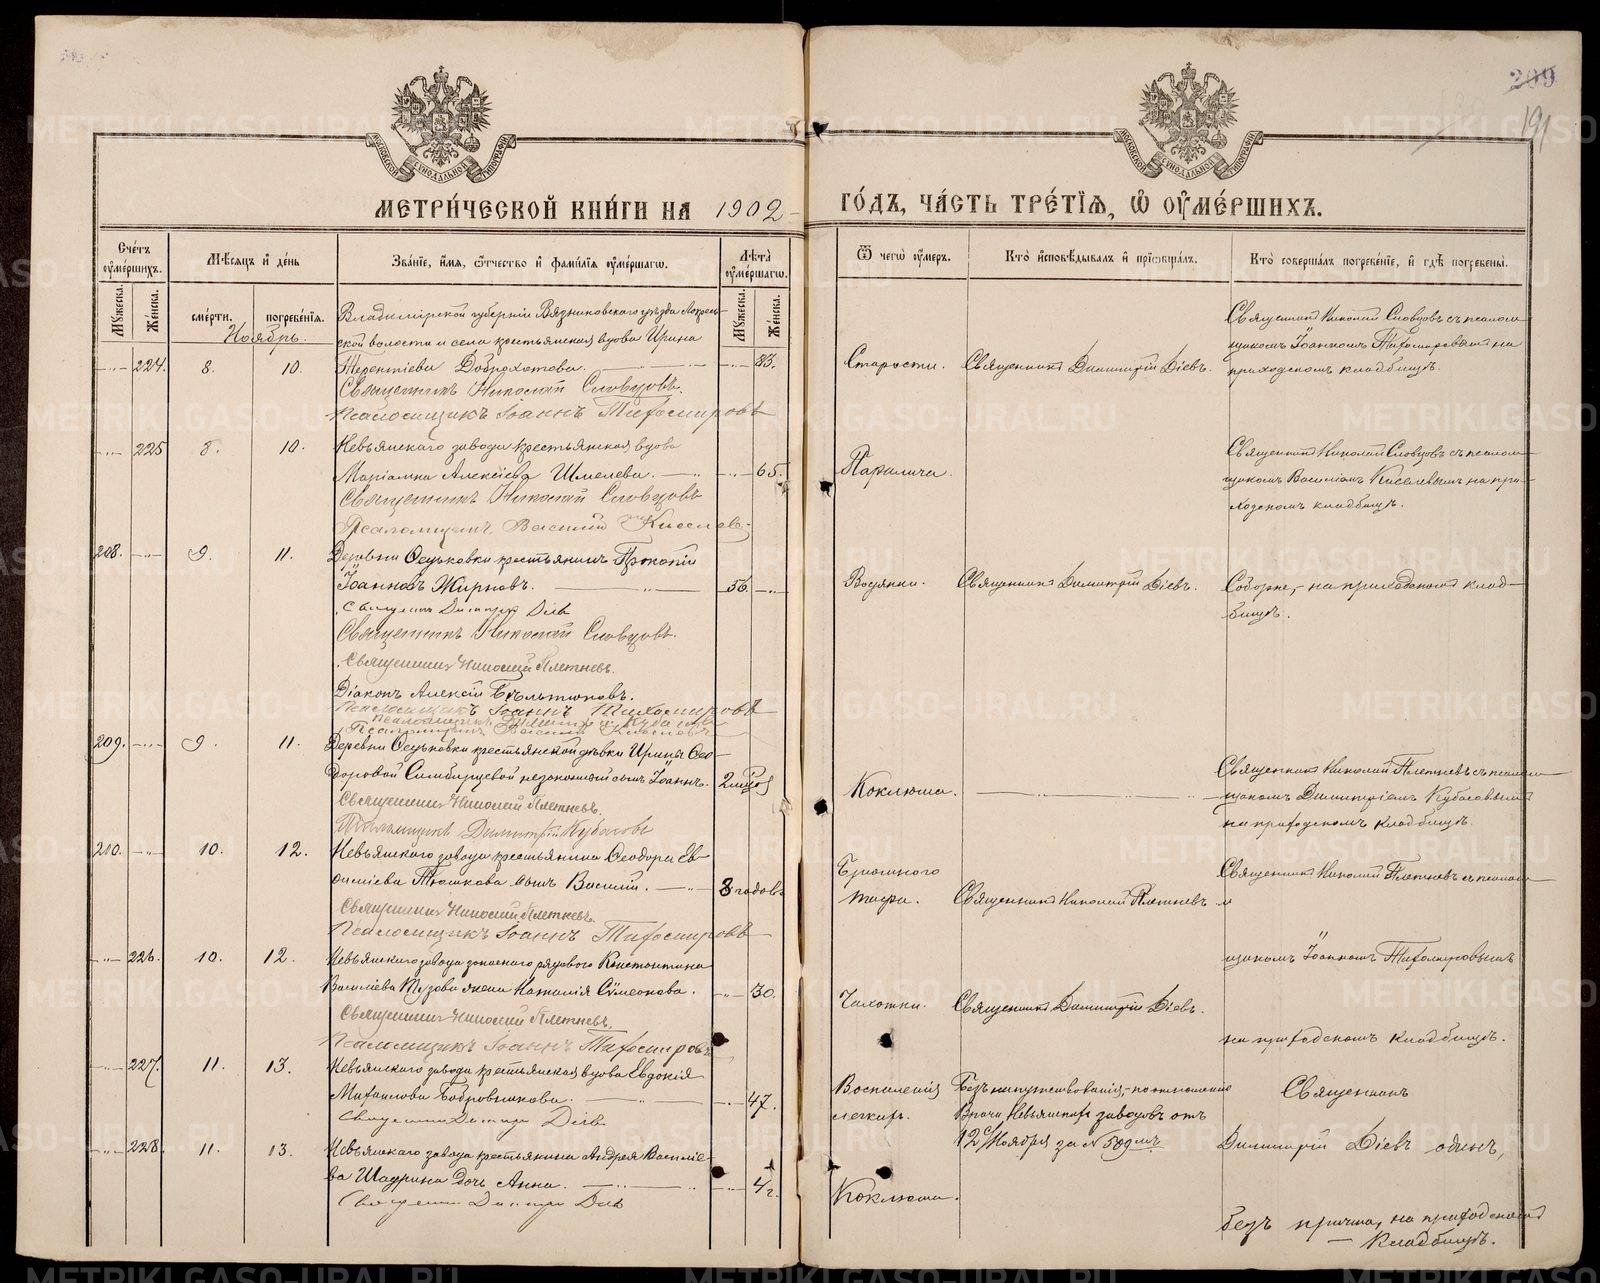 209
191
МЕТРИ́ЧЕСКОЙ КНИ́ГИ НА 1902
ГО́ДЪ, ЧА́СТЬ ТРЕ́ТЇѦ, Ѡ ОУМЕ́РШИХЪ.
Счетъ оумершихъ.
Мѣсяцъ и день
Званїе, имя, отчество и фамилїя оумершагѡ.
Лѣта оумершагѡ.
Ѿ чегѡ оумеръ.
Кто исповѣдывалъ и прїобщалъ.
Кто совершалъ погребенїе, и гдѣ погребены.
Мужеска.
Женска.
смерти.
погребенїя.
Мужеска.
Женска.
Ноябрь.
Владимірской губерніи Вязниковскаго уѣзда
ской волости и села крестьянская вдова Ирина
224. 8. 10. Терентіева Доброхотова. 83.
Священникъ Николай Словцовъ.
Псаломщикъ Іоаннъ Тихомировъ
Старости. Священникъ Димитрій Діевъ.
Священникъ Николай Словцовъ съ псалом-
щикомъ Іоанномъ Тихомировымъ на
приходскомъ кладбищѣ.
225 8. 10. Невьянскаго завода крестьянская вдова
Маріамна Алексіева Шмелева. 65.
Священникъ Николай Словцовъ
Псаломщикъ Василій Киселевъ
Паралича.
Священникъ Николай Словцовъ съ псалом-
щикомъ Василіемъ Киселевымъ на при-
ходскомъ кладбищѣ.
208. 9. 11. Деревни Осиновки крестьянинъ Прокопій
Іоанновъ Жирновъ. 56.
Священникъ Димитрій Діевъ
Священникъ Николай Словцовъ.
Священникъ Николай Плетневъ.
Діаконъ Алексій
Псаломщикъ Іоаннъ Тихомировъ
Псаломщикъ Димитрій Кубасовъ
Псаломщикъ Василій Киселевъ
Водянки. Священникъ Димитрій Діевъ.
Соборне, на приходскомъ клад-
бищѣ.
209. 9. 11. Деревни Осиновки крестьянской дѣвки Ирины Ѳео-
доровой незаконный сынъ Іоаннъ.
Священникъ Николай Плетневъ.
Псаломщикъ Димитрій Кубасовъ
Коклюша.
Священникъ Николай Плетневъ съ псалом-
щикомъ Димитріемъ Кубасовымъ
на приходскомъ кладбищѣ.
210. 10. 12. Невьянскаго завода крестьянина Ѳеодора Ев-
ѳиміева сынъ Василій. 8 годовъ
Священникъ Николай Плетневъ.
Псаломщикъ Іоаннъ Тихомировъ
Брюшного
тифа. Священникъ Николай Плетневъ
Священникъ Николай Плетневъ съ псалом-
щикомъ Іоанномъ Тихомировымъ
на приходскомъ кладбищѣ.
226. 10. 12. Невьянскаго завода запаснаго рядового Константина
Василіева жена Наталія Сѵмеонова. 30.
Священникъ Николай Плетневъ.
Псаломщикъ Іоаннъ Тихомировъ
Чахотки. Священникъ Димитрій Діевъ.
227. 11. 13. Невьянскаго завода крестьянская вдова Евдокія
Михаилова Бобровникова. 47.
Священникъ Димитрій Діевъ
Воспаленія
легкихъ.
Безъ напутствованія, по отношенію
Врача Невьянскихъ заводовъ отъ
12 Ноября за № 509мъ
Священникъ
Димитрій Діевъ одинъ,
безъ причта, на приходскомъ
кладбищѣ.
228. 11. 13. Невьянскаго завода крестьянина Андрея Василіе-
ва Шадрина дочь Анна. 4 г.
Священникъ Димитрій Діевъ
Коклюша.
METRIKI.GASO-URAL.RU